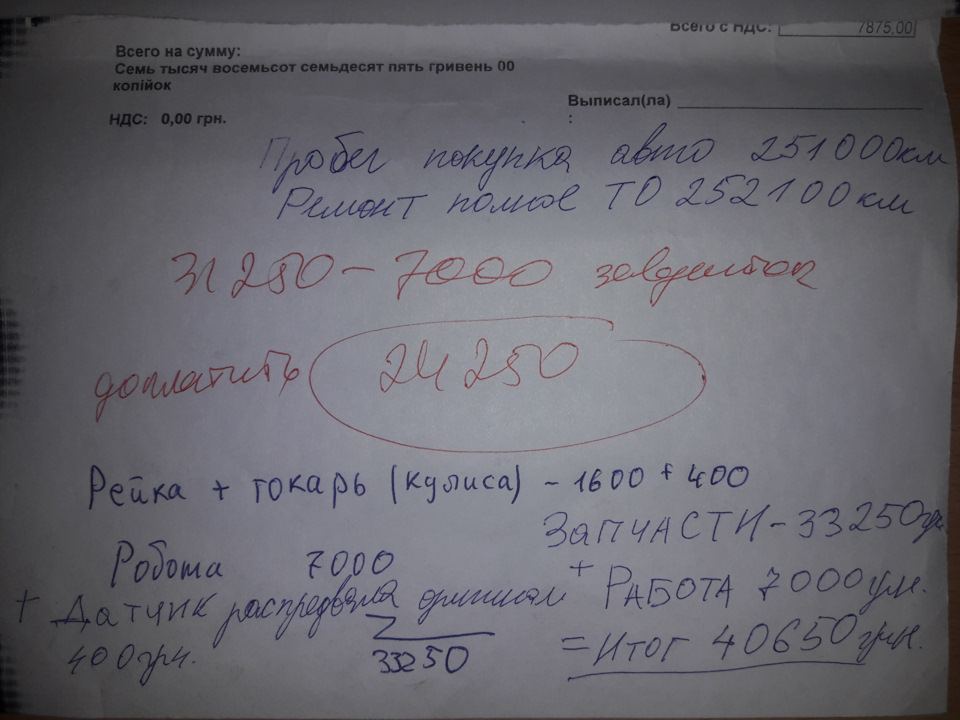 Всего с НДС: 7875,00
Всего на сумму:
Семь тысяч восемьсот семьдесят пять гривень 00
копійок
Выписал(ла)
:
НДС: 0,00 грн.
Пробег покупка авто 251000км
Ремонт полное ТО 252100км
31250 - 7000
доплатить 24250
Рейка + токарь (кулиса) - 1600 + 400
ЗАПЧАСТИ - 33250грн
Робота 7000
+ РАБОТА 7000грн.
+ Датчик распредвала оригинал
400грн.
33250
= Итог 40650грн.